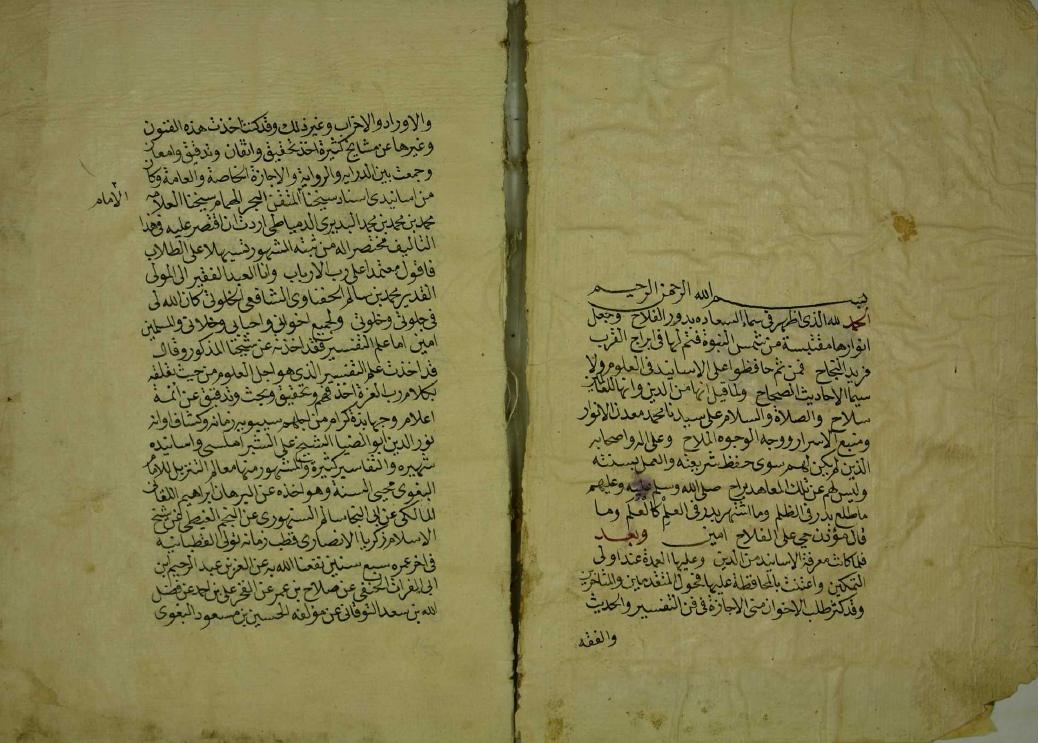 بسم الله الرحمن الرحيم
الحمد لله الذى اظهر فى سماء السعاده بدور الفلاح وجعل
انوارها مقتبسة من شمس النبوة فتم لها فى ابراج القرب
مزيد النجاح فمن ثم حافظوا على الاسانيد فى العلوم ولا
سيما الاحاديث الصحاح ولما قيل انها من الدين وانها للطالب
سلاح والصلاة والسلام على سيدنا محمد معدن الانوار
ومنبع الاسرار ووجه الوجوه الملاح وعلى اله واصحابه
الذين لم يكن لهم سوى حفظ شريعته والعمل بسنته
وليس لهم عن تلك المعاهد براح صلى الله وسلم عليه وعليهم
ما طلع بدر فى الظلم وما اشتهر بدر فى العلم كالعلم وما
قال مؤذن حى على الفلاح امين وبعد
فلما كانت معرفة الاسانيد من الدين وعليها العمدة عند اولى
التمكين واعتنت بالمحافظة عليها فحول المتقدمين والمتاخرين
وقد كثر طلب الاخوان منى الاجازة فى فن التفسير والحديث
والفقه
والاوراد والاحزاب وغير ذلك وقد كنت اخذت هذه الفنون
وغيرها عن مشايخ كثيرة اخذ تحقيق واتقان وتدقيق وامعان
وجمعت بين الدراية والرواية والاجازة الخاصة والعامة وكان
من اسانيدى اسناد شيخنا المتقن البحر الهمام شيخنا العلامه
الامام
محمد بن محمد بن محمد البديرى الدمياطى اردت ان اقتصر عليه فى هذا
التاليف مختصرا له من ثبته المشهور تسهيلا على الطلاب
فاقول معتمدا على رب الارباب وانا العبد الفقير الى المولى
القدير محمد بن سالم الحفناوى الشافعى الخلوتى كان الله لى
فى جلوتى وخلوتى ولجميع اخوانى واحبابى وخلانى والمسلمين
امين اما علم التفسير فقد اخذته عن شيخنا المذكور وقال
قد اخذت علم التفسير الذى هو اجل العلوم من حيث تعلقه
بكلام رب العزة اخذ فهم وتحقيق وبحث وتدقيق عن ائمة
اعلام وجهابذة كرام من اجلهم سيبويه زمانه وكشاف اوانه
نور الدين ابو الضيا الشيخ على الشبراملسى واسانيده
شهيره والتفاسير كثيرة والمشهور منها معالم التنزيل للامام
البغوى محيى السنة وهو اخذه عن البرهان ابراهيم اللقانى
المالكى عن ابى النجا سالم السنهورى عن النجم الغيطى عن شيخ
الاسلام زكريا الانصارى قطب زمانه تولى القطبانية
فى اخر عمره سبع سنين نفعنا الله به عن العز بن عبد الرحيم بن
ابى الفرات الحنفى عن صلاح بن عمر عن الفخر على بن احمد عن فضل
لله بن سعد النوقانى عن مؤلفه الحسين بن مسعود البغوى